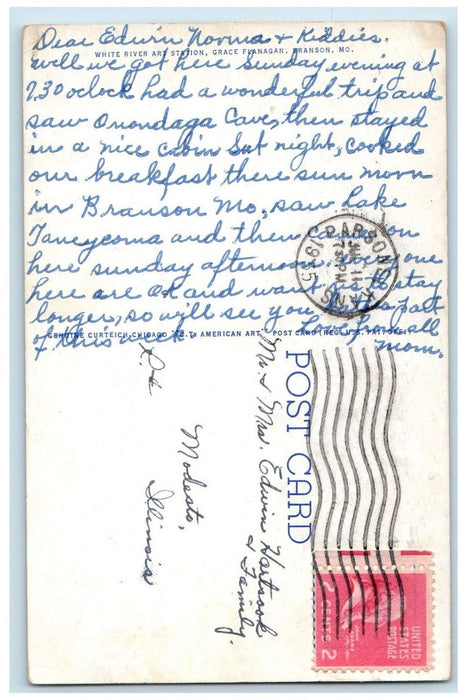 Dear Edwin Norma & Kiddies.
WHITE RIVER ART STATION, GRACE FLANAGAN, BRANSON, MO.
well we got here Sunday evening at
7.30 oclock had a wonderful trip and
saw Onondaga Cave, then stayed
in a nice cabin Sat night, cooked
our breakfast there sun morn
in Branson Mo, saw Lake
Taneycoma and then on
here sunday afternoon. everyone
here are ok and want us to stay
longer, so will see you part
of this week Love from all
Mom.
GENUINE CURTEICH-CHICAGO "C.T. AMERICAN ART" POST CARD (REG. U.S. PAT. OFF.)
PARSONS
KAN.
11
PM
POST CARD
Mr. & Mrs. Edwin Hartsook
& Family.
Modesto,
Illinois
UNITED
STATES
POSTAGE
2 CENTS 2